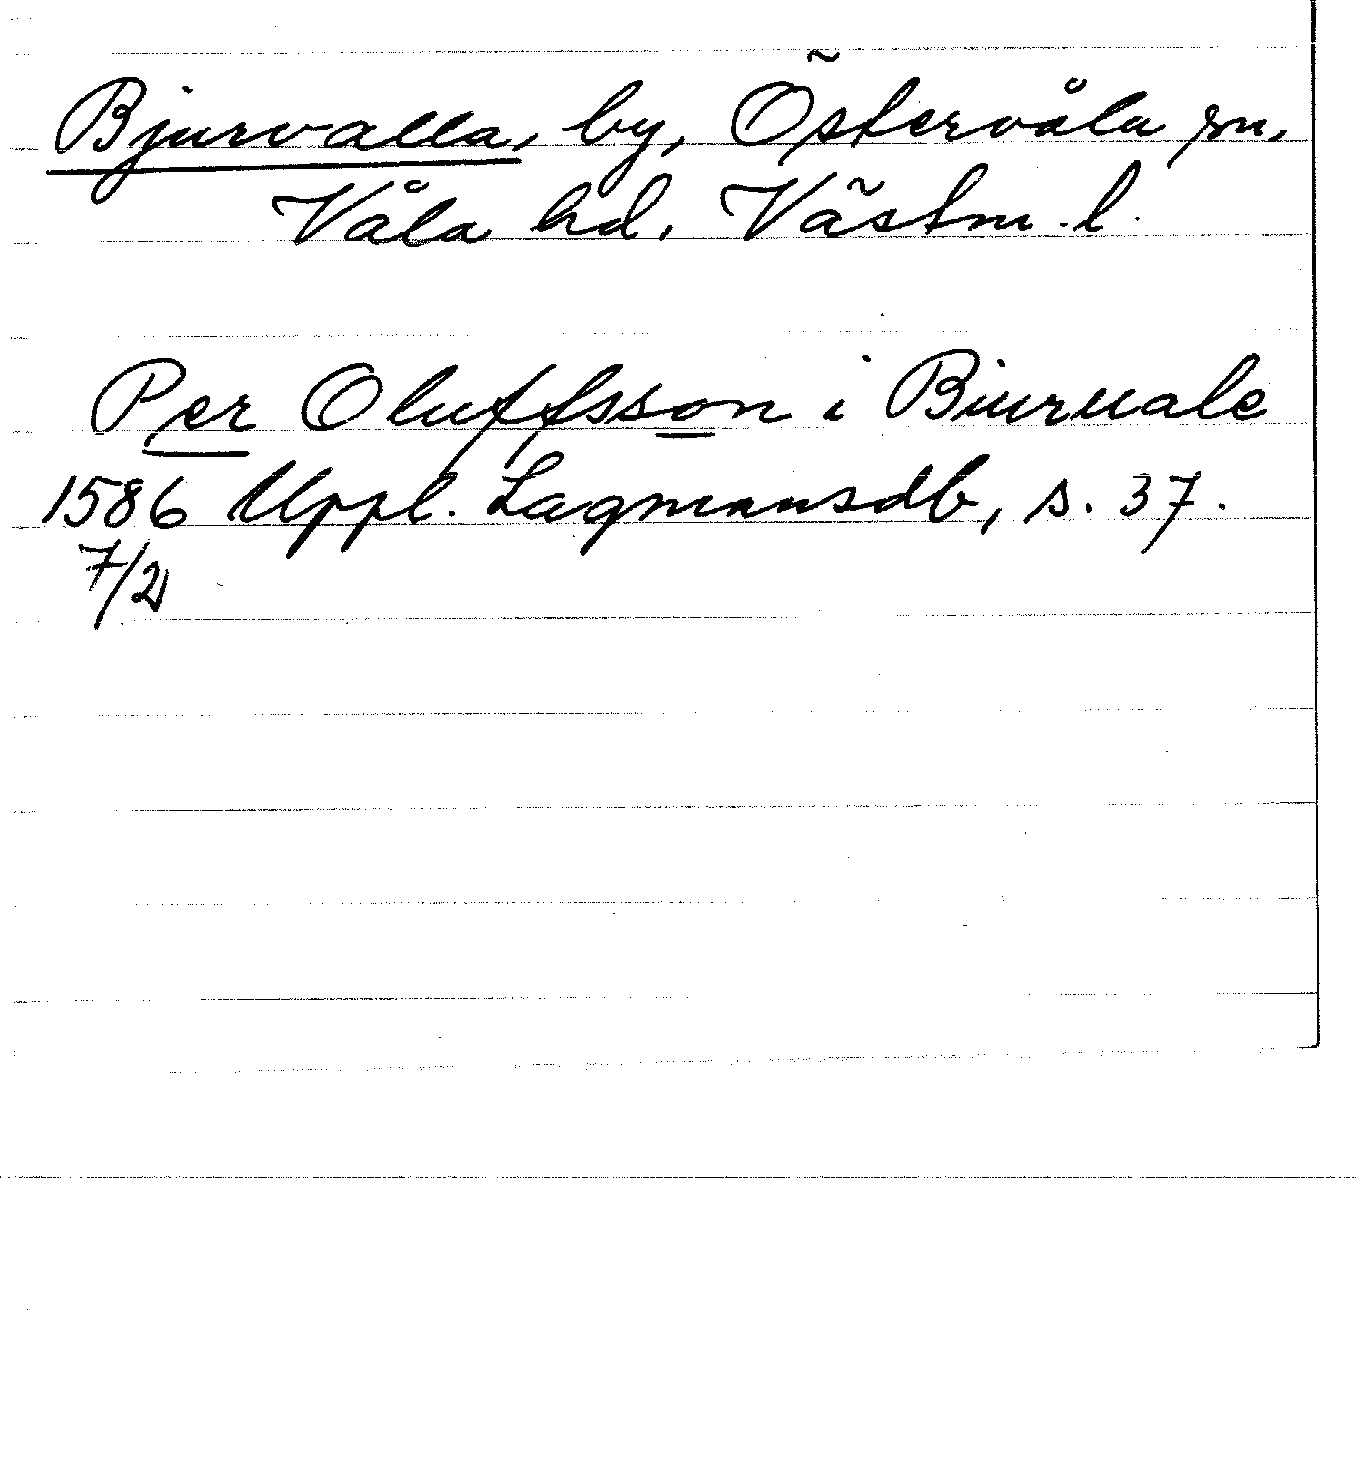 Bjurvalla, by, Östervåla sn,
Våla hd. Västm. l.
Per Oluffsson i Biuruale
1586 Uppl. Lagmansdb, s. 37.
7/2